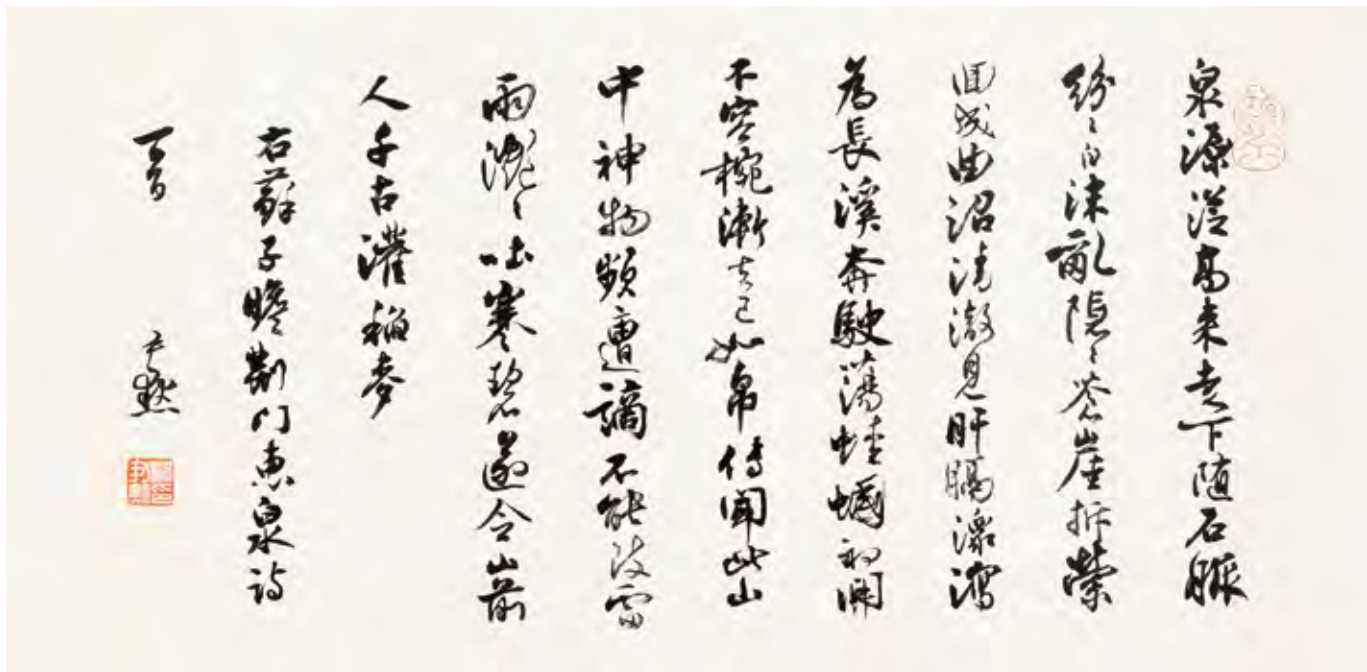 泉源從高來走下随石脈
紛々白沫亂隱々蒼崖拆縈
回成曲沼清澈見肝膈潨瀉
為長溪奔駛蕩蛙蟈初開
不容椀漸去已如帛傳聞此山
中神物嬾遭謫不能致雷
雨灩々吐寒碧遂令山前
人千古灌稻麥
右蘇子瞻荆門惠泉詩
一首 尹默